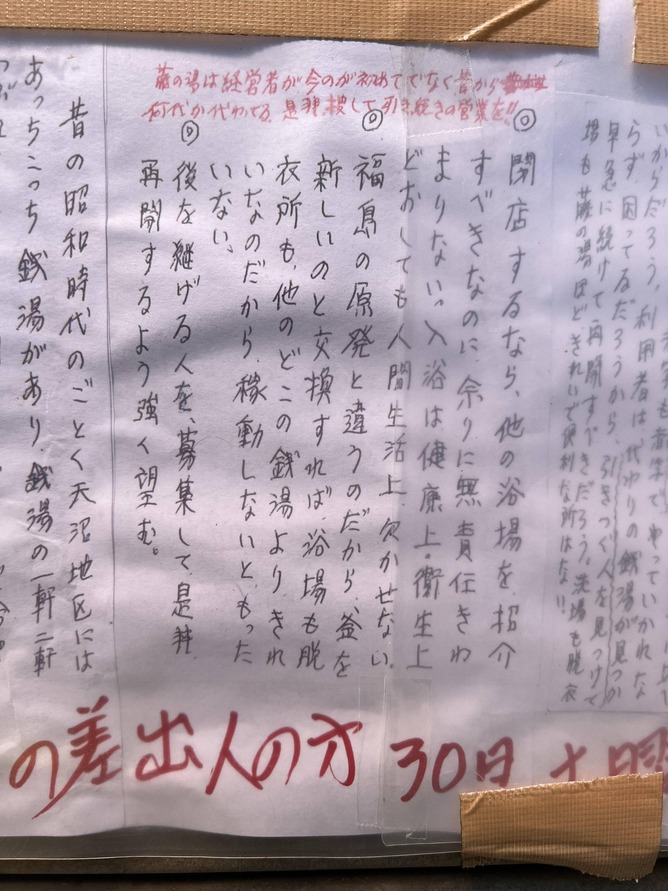 藤の湯は経営者が今のが初めてでなく昔から
何代か代わってる。是非、捜して引き続きの営業を!!
いからだろう。利用者は、代わりの銭湯が見つか
らず、困ってるだろうから、引きつぐ人を見つけて
早急に続けて再開すべきだろう。洗場も脱衣
場も藤の湯ほど、きれいで便利な所はない!
◎ 閉店するなら、他の浴場を紹介
すべきなのに、余りに無責任きわ
まりない。入浴は健康上・衛生上
どおしても人間生活上欠かせない。
◎ 福島の原発と違うのだから、釜を
新しいのと交換すれば、浴場も脱
衣所も、他のどこの銭湯より、きれ
いなのだから、稼動しないと、もった
いない、
◎ 後を継げる人を、募集して、是非
再開するよう強く望む。
昔の昭和時代のごとく天沼地区には
あっちこっち銭湯があり、銭湯の一軒二軒
の差出人の方 30日 土